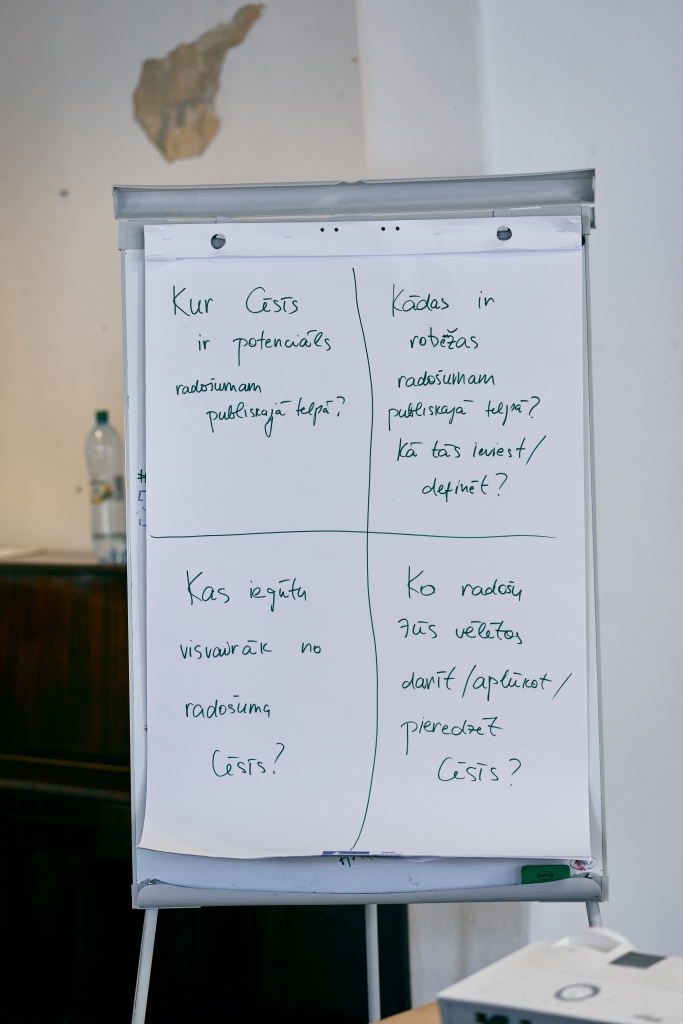 Kur Cēsīs
ir potenciāls
radošumam
publiskajā telpā?
Kādas ir
robežas
radošumam
publiskajā telpā?
Kā tās ieviest/
definēt?
Kas iegūtu
visvairāk no
radošuma
Cēsīs?
Ko radošu
Jūs vēlētos
darīt/aplūkot/
pieredzēt
Cēsīs?